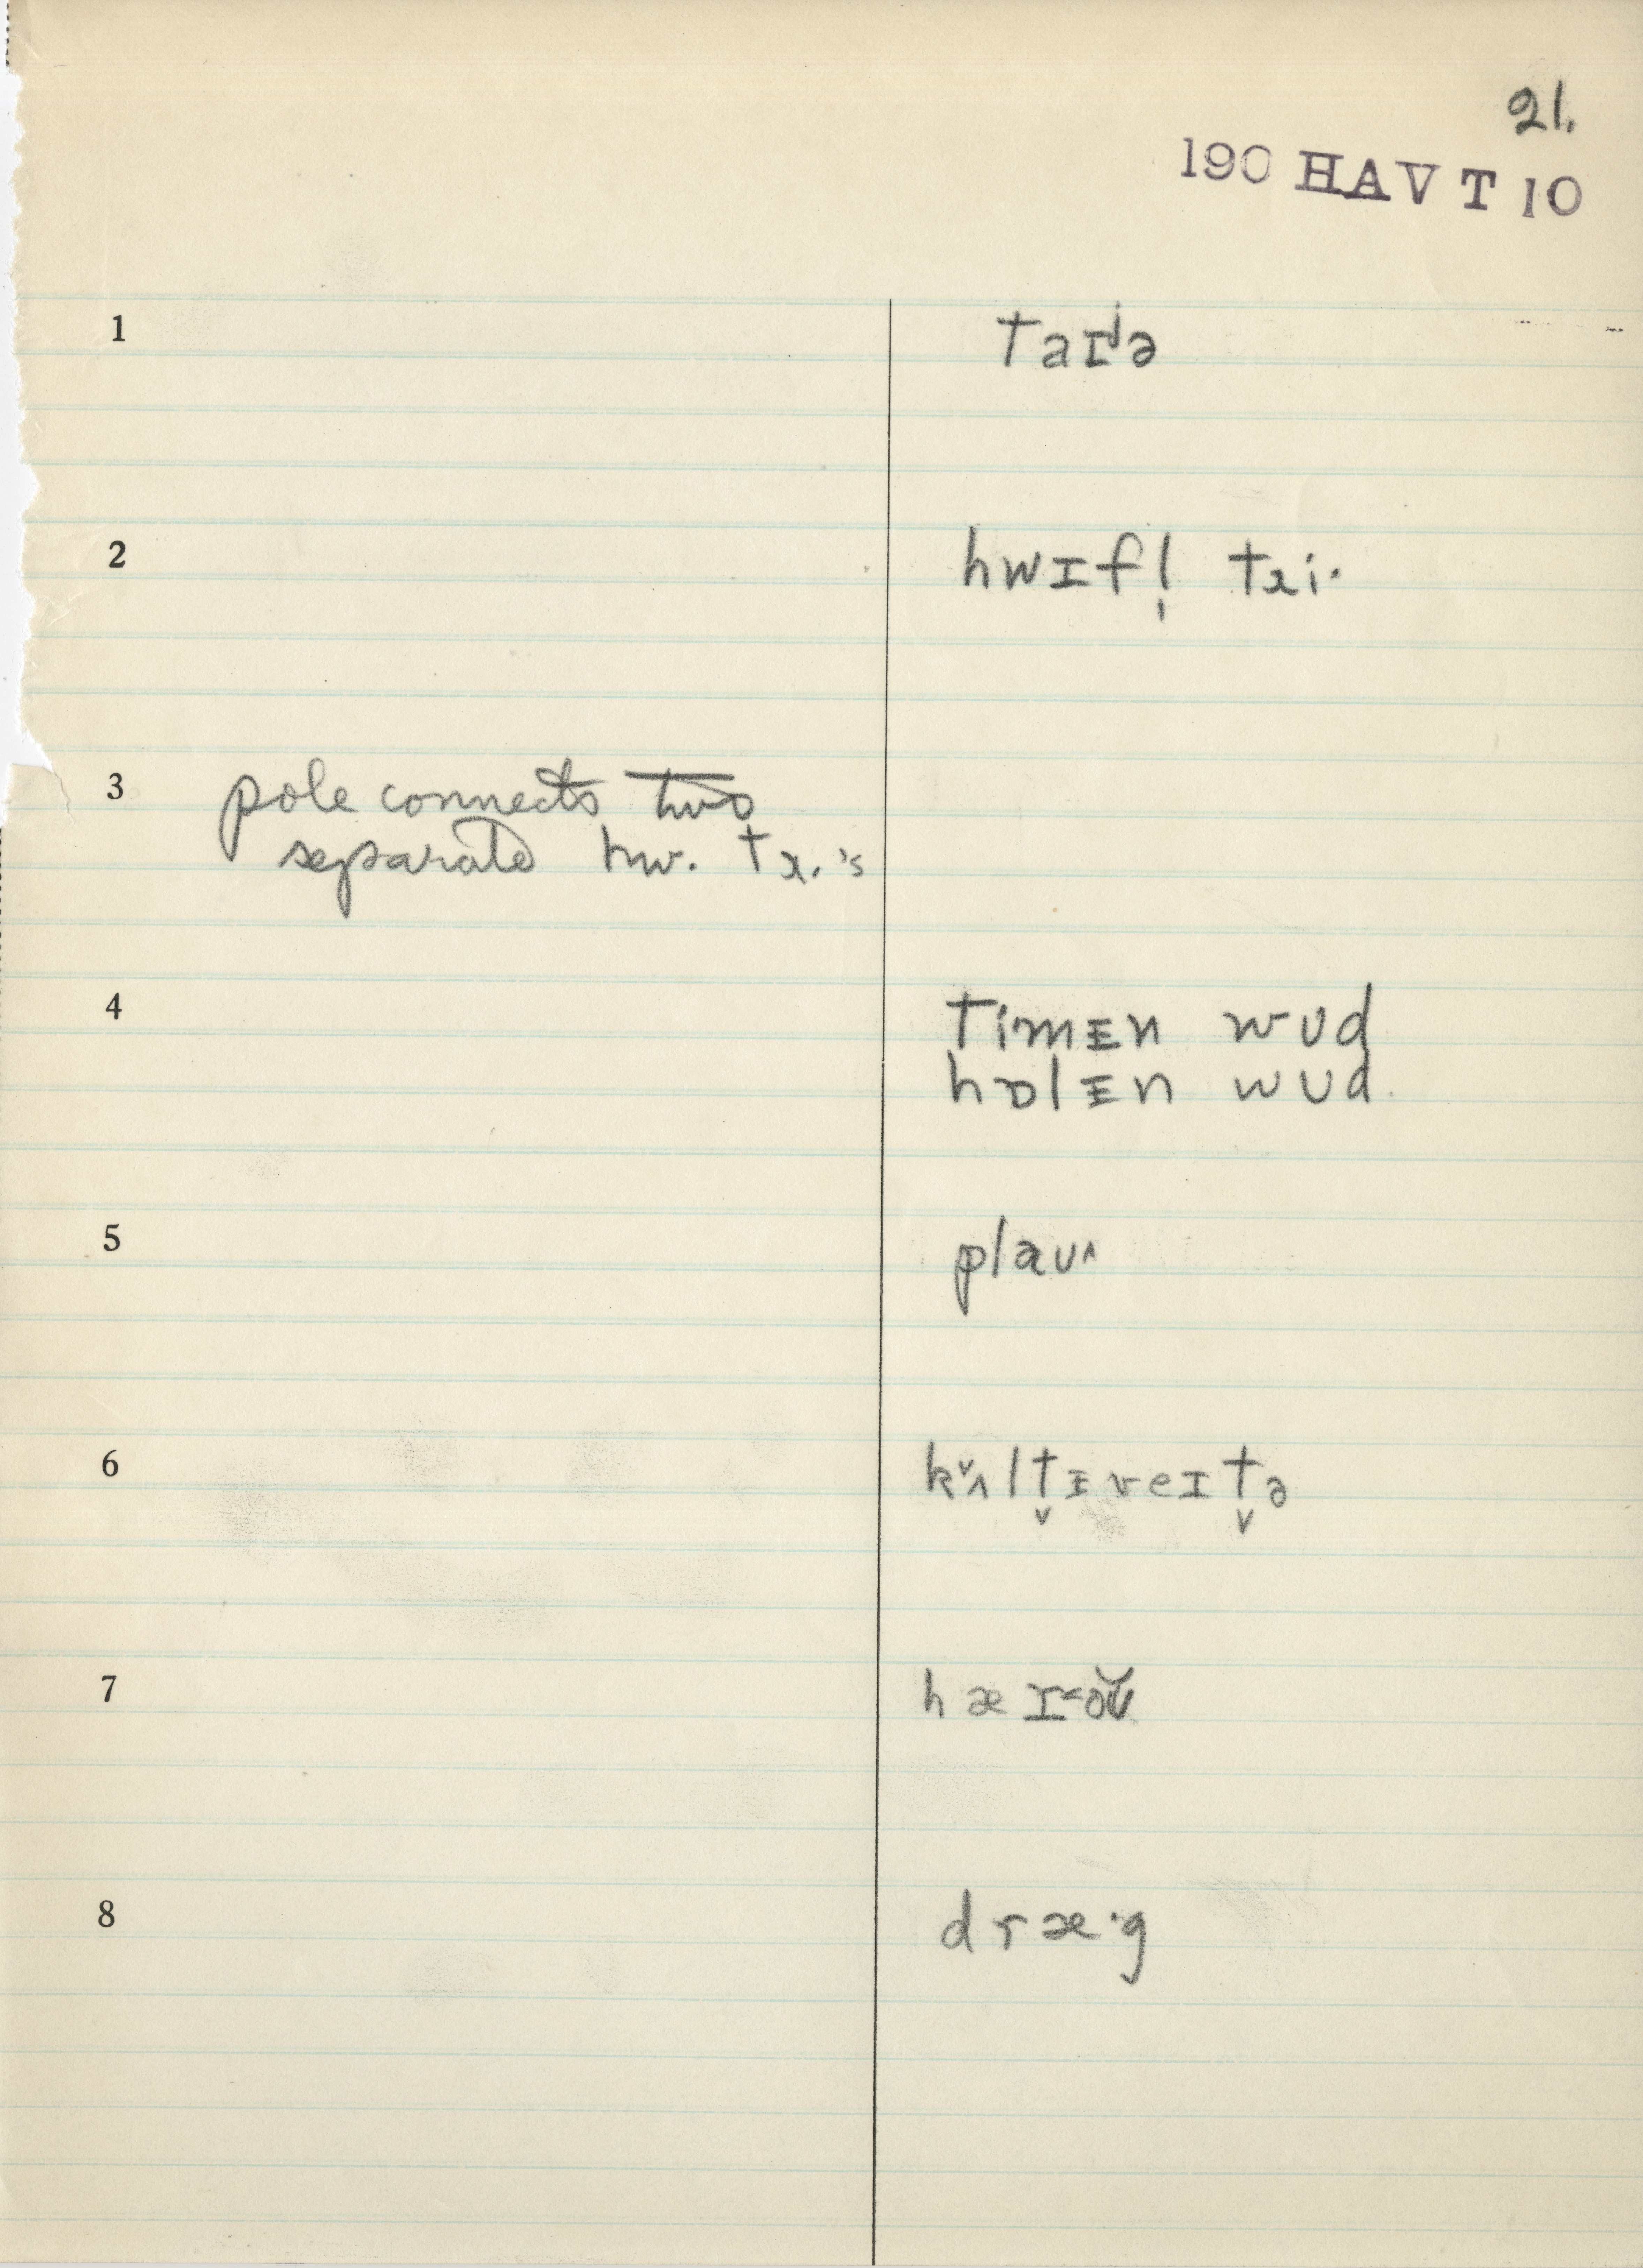 21.
190 HAV T 10
1 taɪʲə
2 hwɪfl̩ tɹi·
3 pole connects two
separate hw. tɹ.'s
4 timᵻn wʊd
hɒlᵻn wʊd
5 plaʊ^
6 kʌ̌lt̬ᵻveɪt̬ə
7
8 dræ·g